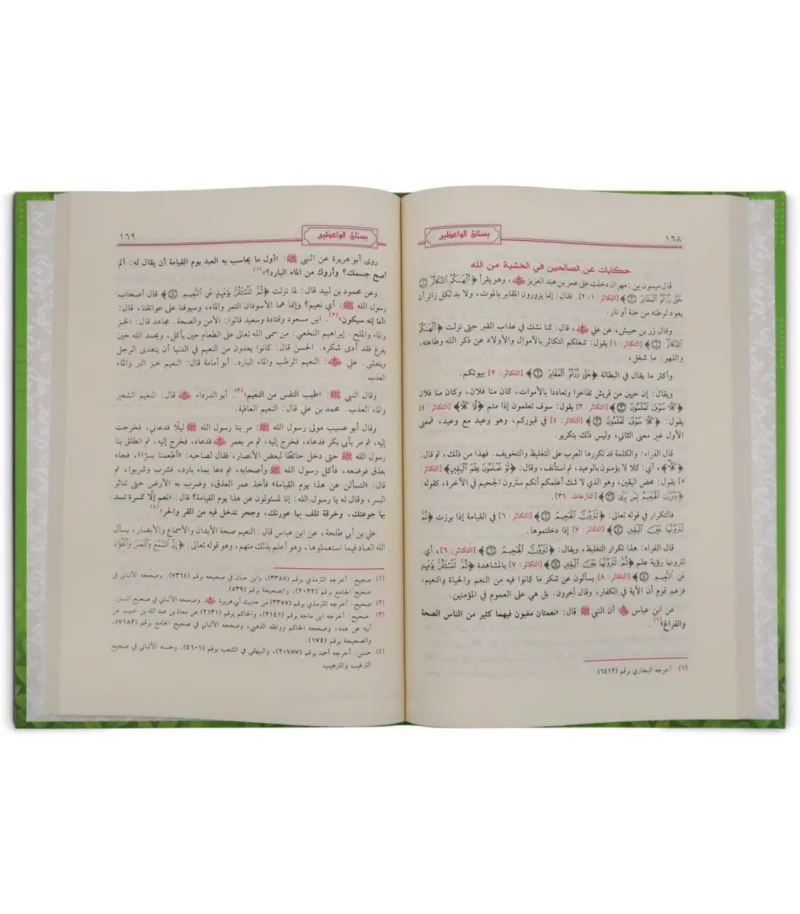 ١٦٨
بستان الواعظين
حكايات عن الصالحين في الخشية من الله
قال ميمون بن مهران دخلت على عمر بن عبد العزيز ﷺ، وهو يقرأ ﴿أَلْهَاكُمُ التَّكَاثُرُ ۝
حَتَّى زُرْتُمُ الْمَقَابِرَ ۝﴾ [التكاثر: ١، ٢]. فقال: إنما يزورون المقابر بالموت، ولا بد لكل زائر أن
يعود لوطنه من جنة أو نار.
وقال زر بن حبيش، عن علي، قال: كنا نشك في عذاب القبر حتى نزلت ﴿أَلْهَاكُمُ
التَّكَاثُرُ ۝﴾ [التكاثر: ١] يقول: شغلكم التكاثر بالأموال والأولاد عن ذكر الله وطاعته،
واللهو: ما شغل.
وأكثر ما يقال في البطالة ﴿حَتَّى زُرْتُمُ الْمَقَابِرَ ۝﴾ [التكاثر: ٢] بيوتكم.
ويقال: إن حيين من قريش تفاخرا وتعاددا بالأموات، كان منا فلان، وكان منا فلان
﴿كَلَّا سَوْفَ تَعْلَمُونَ ۝﴾ [التكاثر: ٣] يقول: سوف تعلمون إذا متم ﴿ثُمَّ كَلَّا﴾ [التكاثر: ٤]
يقول: ﴿كَلَّا سَوْفَ تَعْلَمُونَ ۝﴾ [التكاثر: ٤] في قبوركم، وهو وعيد مع وعيد، فمعنى
الأول غير معنى الثاني، وليس ذلك بتكرير.
قال الفراء: والكلمة قد تكررها العرب على التغليظ والتخويف. فهذا من ذلك، ثم قال:
﴿كَلَّا﴾، أي: كلا لا يؤمنون بالوعيد، ثم استأنف، وقال: ﴿لَوْ تَعْلَمُونَ عِلْمَ الْيَقِينِ﴾ [التكاثر:
٥] يقول: محض اليقين، وهو الذي لا شك أعلمكم أنكم سترون الجحيم في الآخرة، كقوله:
﴿وَبُرِّزَتِ الْجَحِيمُ لِمَن يَرَى ۝﴾ [النازعات: ٣٦].
فالتكرار في قوله تعالى: ﴿لَتَرَوُنَّ الْجَحِيمَ ۝﴾ [التكاثر: ٦] في القيامة إذا برزت ﴿ثُمَّ
لَتَرَوُنَّهَا عَيْنَ الْيَقِينِ ۝﴾ [التكاثر: ٧] إذا دخلتموها.
قال الفراء: هذا تكرار التغليظ، ويقال: ﴿لَتَرَوُنَّ الْجَحِيمَ ۝﴾ [التكاثر: ٦]، أي،
لترونها رؤية علم ﴿ثُمَّ لَتَرَوُنَّهَا عَيْنَ الْيَقِينِ ۝﴾ [التكاثر: ٧] بالمشاهدة ﴿ثُمَّ لَتُسْأَلُنَّ يَوْمَئِذٍ
عَنِ النَّعِيمِ ۝﴾ [التكاثر: ٨] يسألون عن شكر ما كانوا فيه من النعم والحياة والنعيم،
فزعم قوم أن الآية في الكفار، وقال آخرون: بل هي على العموم في المؤمنين.
عن ابن عباس أن النبي ﷺ قال: «نعمتان مغبون فيهما كثير من الناس الصحة
والفراغ»(١).
(١) أخرجه البخاري برقم (٦٤١٢).
بستان الواعظين
١٦٩
روى أبو هريرة عن النبي ﷺ: «أول ما يحاسب به العبد يوم القيامة أن يقال له: ألم
أصح جسمك؟ وأروك من الماء البارد؟»(١)
وعن محمود بن لبيد قال: لما نزلت ﴿ثُمَّ لَتُسْأَلُنَّ يَوْمَئِذٍ عَنِ النَّعِيمِ ۝﴾ قال أصحاب
رسول الله ﷺ: أي نعيم؟ وإنما هما الأسودان التمر والماء، وسيوفنا على عواتقنا، قال:
«أما إنه سيكون»(٢). ابن مسعود وقتادة وسعيد قالوا: الأمن والصحة. مجاهد قال: الخبز
والماء والملح. إبراهيم النخعي: من سمى الله تعالى على الطعام حين يأكل، ويحمد الله حين
يفرغ فقد أدى شكره. الحسن قال: كانوا يعدون من النعيم في الدنيا أن يتغدى الرجل
ويتعشى. علي: النعيم الرطب والماء البارد. أبو أمامة قال: النعيم خبز البر والماء
العذب.
وقال النبي ﷺ: «طيب النفس من النعيم»(٣). أبو الدرداء قال: النعيم الشعير
والماء العذب. محمد بن علي قال: النعيم العافية.
وقال أبو عسيب مولى رسول الله ﷺ: مر بنا رسول الله ﷺ ليلًا فدعاني، فخرجت
إليه، ثم مر بأبي بكر فدعاه، فخرج إليه، ثم مر بعمر فدعاه، فخرج إليه، ثم انطلق بنا
رسول الله ﷺ حتى دخل حائطًا لبعض الأنصار، فقال لصاحبه: «أطعمنا بسرًا»، فجاء
بعذق فوضعه، فأكل رسول الله ﷺ وأصحابه، ثم دعا بماء بارد، فشرب وشربوا، ثم
قال: «لتسألن عن هذا يوم القيامة» فأخذ عمر العذق، وضرب به الأرض حتى تناثر
البسر، وقال له يا رسول الله: إنا لمسئولون عن هذا يوم القيامة؟ قال: «نعم إلا كسرة تسد
بها جوعتك، وخرقة تلف بها عورتك، وجحر تدخل فيه من القر والحر»(٤)
علي بن أبي طلحة، عن ابن عباس قال: النعيم صحة الأبدان والأسماع والأبصار، يسأل
الله العباد فيما استعملوها، وهو أعلم بذلك منهم، وهو قوله تعالى: ﴿إِنَّ السَّمْعَ وَالْبَصَرَ وَالْفُؤَادَ
(١) صحيح: أخرجه الترمذي برقم (٣٣٥٨)، وابن حبان في صحيحه برقم (٧٣٦٤)، وصححه الألباني في
صحيح الجامع برقم (٢٠٢٢)، والصحيحة برقم (٥٣٩)
(٢) صحيح: أخرجه الترمذي برقم (٣٣٥٧) من حديث أبي هريرة، وصححه الألباني في صحيح السنن
(٣) صحيح: أخرجه ابن ماجه برقم (٢١٤١)، والحاكم برقم (٢١٣١) عن معاذ بن عبد الله بن خبيب عن
أبيه عن عمه، وصححه الحاكم ووافقه الذهبي، وصححه الألباني في صحيح الجامع برقم (٧١٨٢)،
والصحيحة برقم (١٧٤)
(٤) حسن: أخرجه أحمد برقم (٢٠٧٨٧)، والبيهقي في الشعب برقم (٤٦٠١)، وحسنه الألباني في صحيح
الترغيب والترهيب